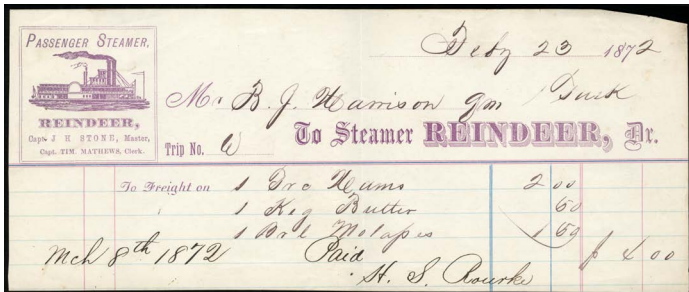 PASSENGER STEAMER,
REINDEER,
Capt. J H STONE, Master,
Capt. TIM. MATHEWS, Clerk.
Feby 23 1872
Mr B. J. Harrison
Trip No. W To Steamer REINDEER, Dr.
To Freight on 1 Hams 2 00
1 Keg Butter 50
1 Brl Molasses 1 50
Mch 8th 1872 Paid $ 4 00
H. S. Rourke